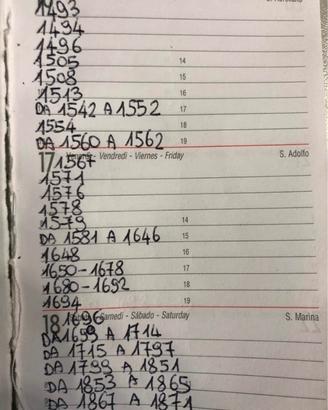 1493
1494
1496
1505 14
1508 15
1513 16
DA 1542 A 1552 17
1554 18
DA 1560 A 1562 19
17 1567 - Vendredi - Viernes - Friday S. Adolfo
1571
1576
1578
1579 14
DA 1581 A 1646 15
1648 16
1650-1678 17
1680-1692 18
1694 19
18 1696 Samedi - Sábado - Saturday S. Marina
DA 1699 A 1714
DA 1715 A 1797
DA 1799 A 1851
DA 1853 A 1865
DA 1867 A 1871